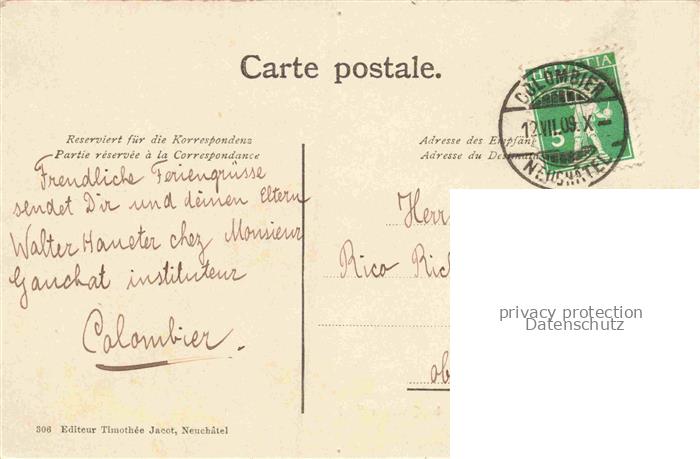 Carte postale.
HELVETIA
COLOMBIER
12.VII.09. X
5
NEUCHÂTEL
Reserviert für die Korrespondenz
Partie réservée à la Correspondance
Adresse des Empfäng
Adresse du Destinat
Freudliche Feriengrüsse
sendet Dir und deinen Eltern
Walter Haueter chez Monsieur
Gauchat instituteur
Colombier.
Herr
Rico Rich
ob
privacy protection
Datenschutz
306 Editeur Timothée Jacot, Neuchâtel